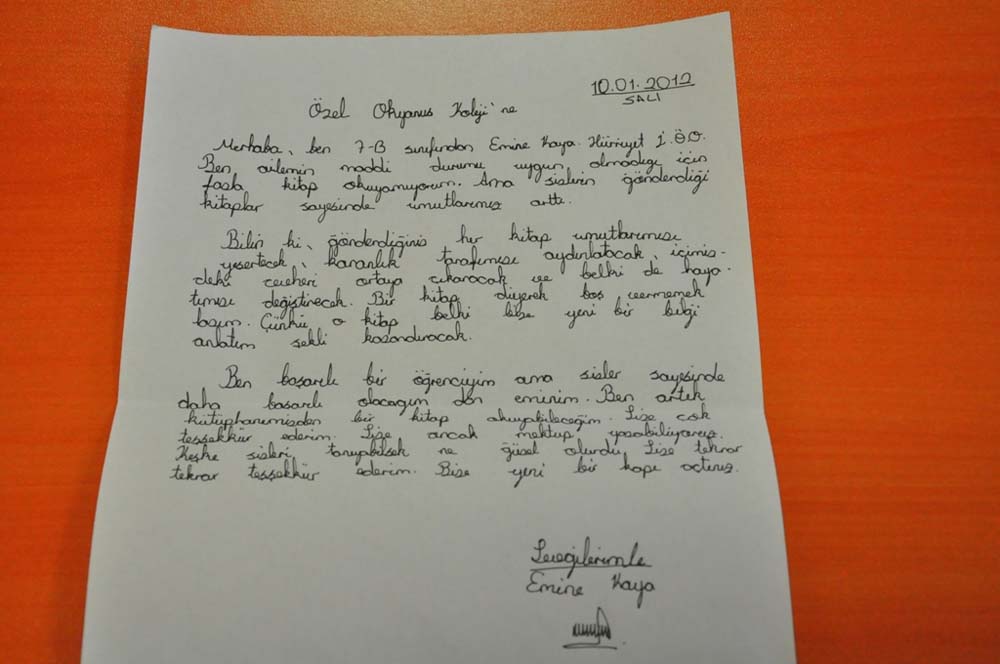 10.01.2012
SALI
Özel Okyanus Koleji'ne
Merhaba, ben 7-B sınıfından Emine Kaya. Hürriyet İ.Ö.O.
Ben ailemin maddi durumu uygun olmadığı için
fazla kitap okuyamıyorum. Ama sizlerin gönderdiği
kitaplar sayesinde umutlarımız arttı.
Bilin ki, gönderdiğiniz her kitap umutlarımızı
yeşertecek, karanlık tarafımızı aydınlatacak, içimiz-
deki cevheri ortaya çıkaracak ve belki de haya-
tımızı değiştirecek. Bir kitap diyerek boş vermemek
lazım. Çünkü o kitap belki bize yeni bir bilgi
anlatım şekli kazandıracak.
Ben başarılı bir öğrenciyim ama sizler sayesinde
daha başarılı olacağım dan eminim. Ben artık
kütüphanemizden bir kitap okuyabileceğim. Size çok
teşşekkür ederim. Size ancak mektup yazabiliyoruz.
Keşke sizleri tanıyabilsek ne güzel olurdu. Size tekrar
tekrar teşşekkür ederim. Bize yeni bir kapı açtınız.
Sevgilerimle
Emine Kaya